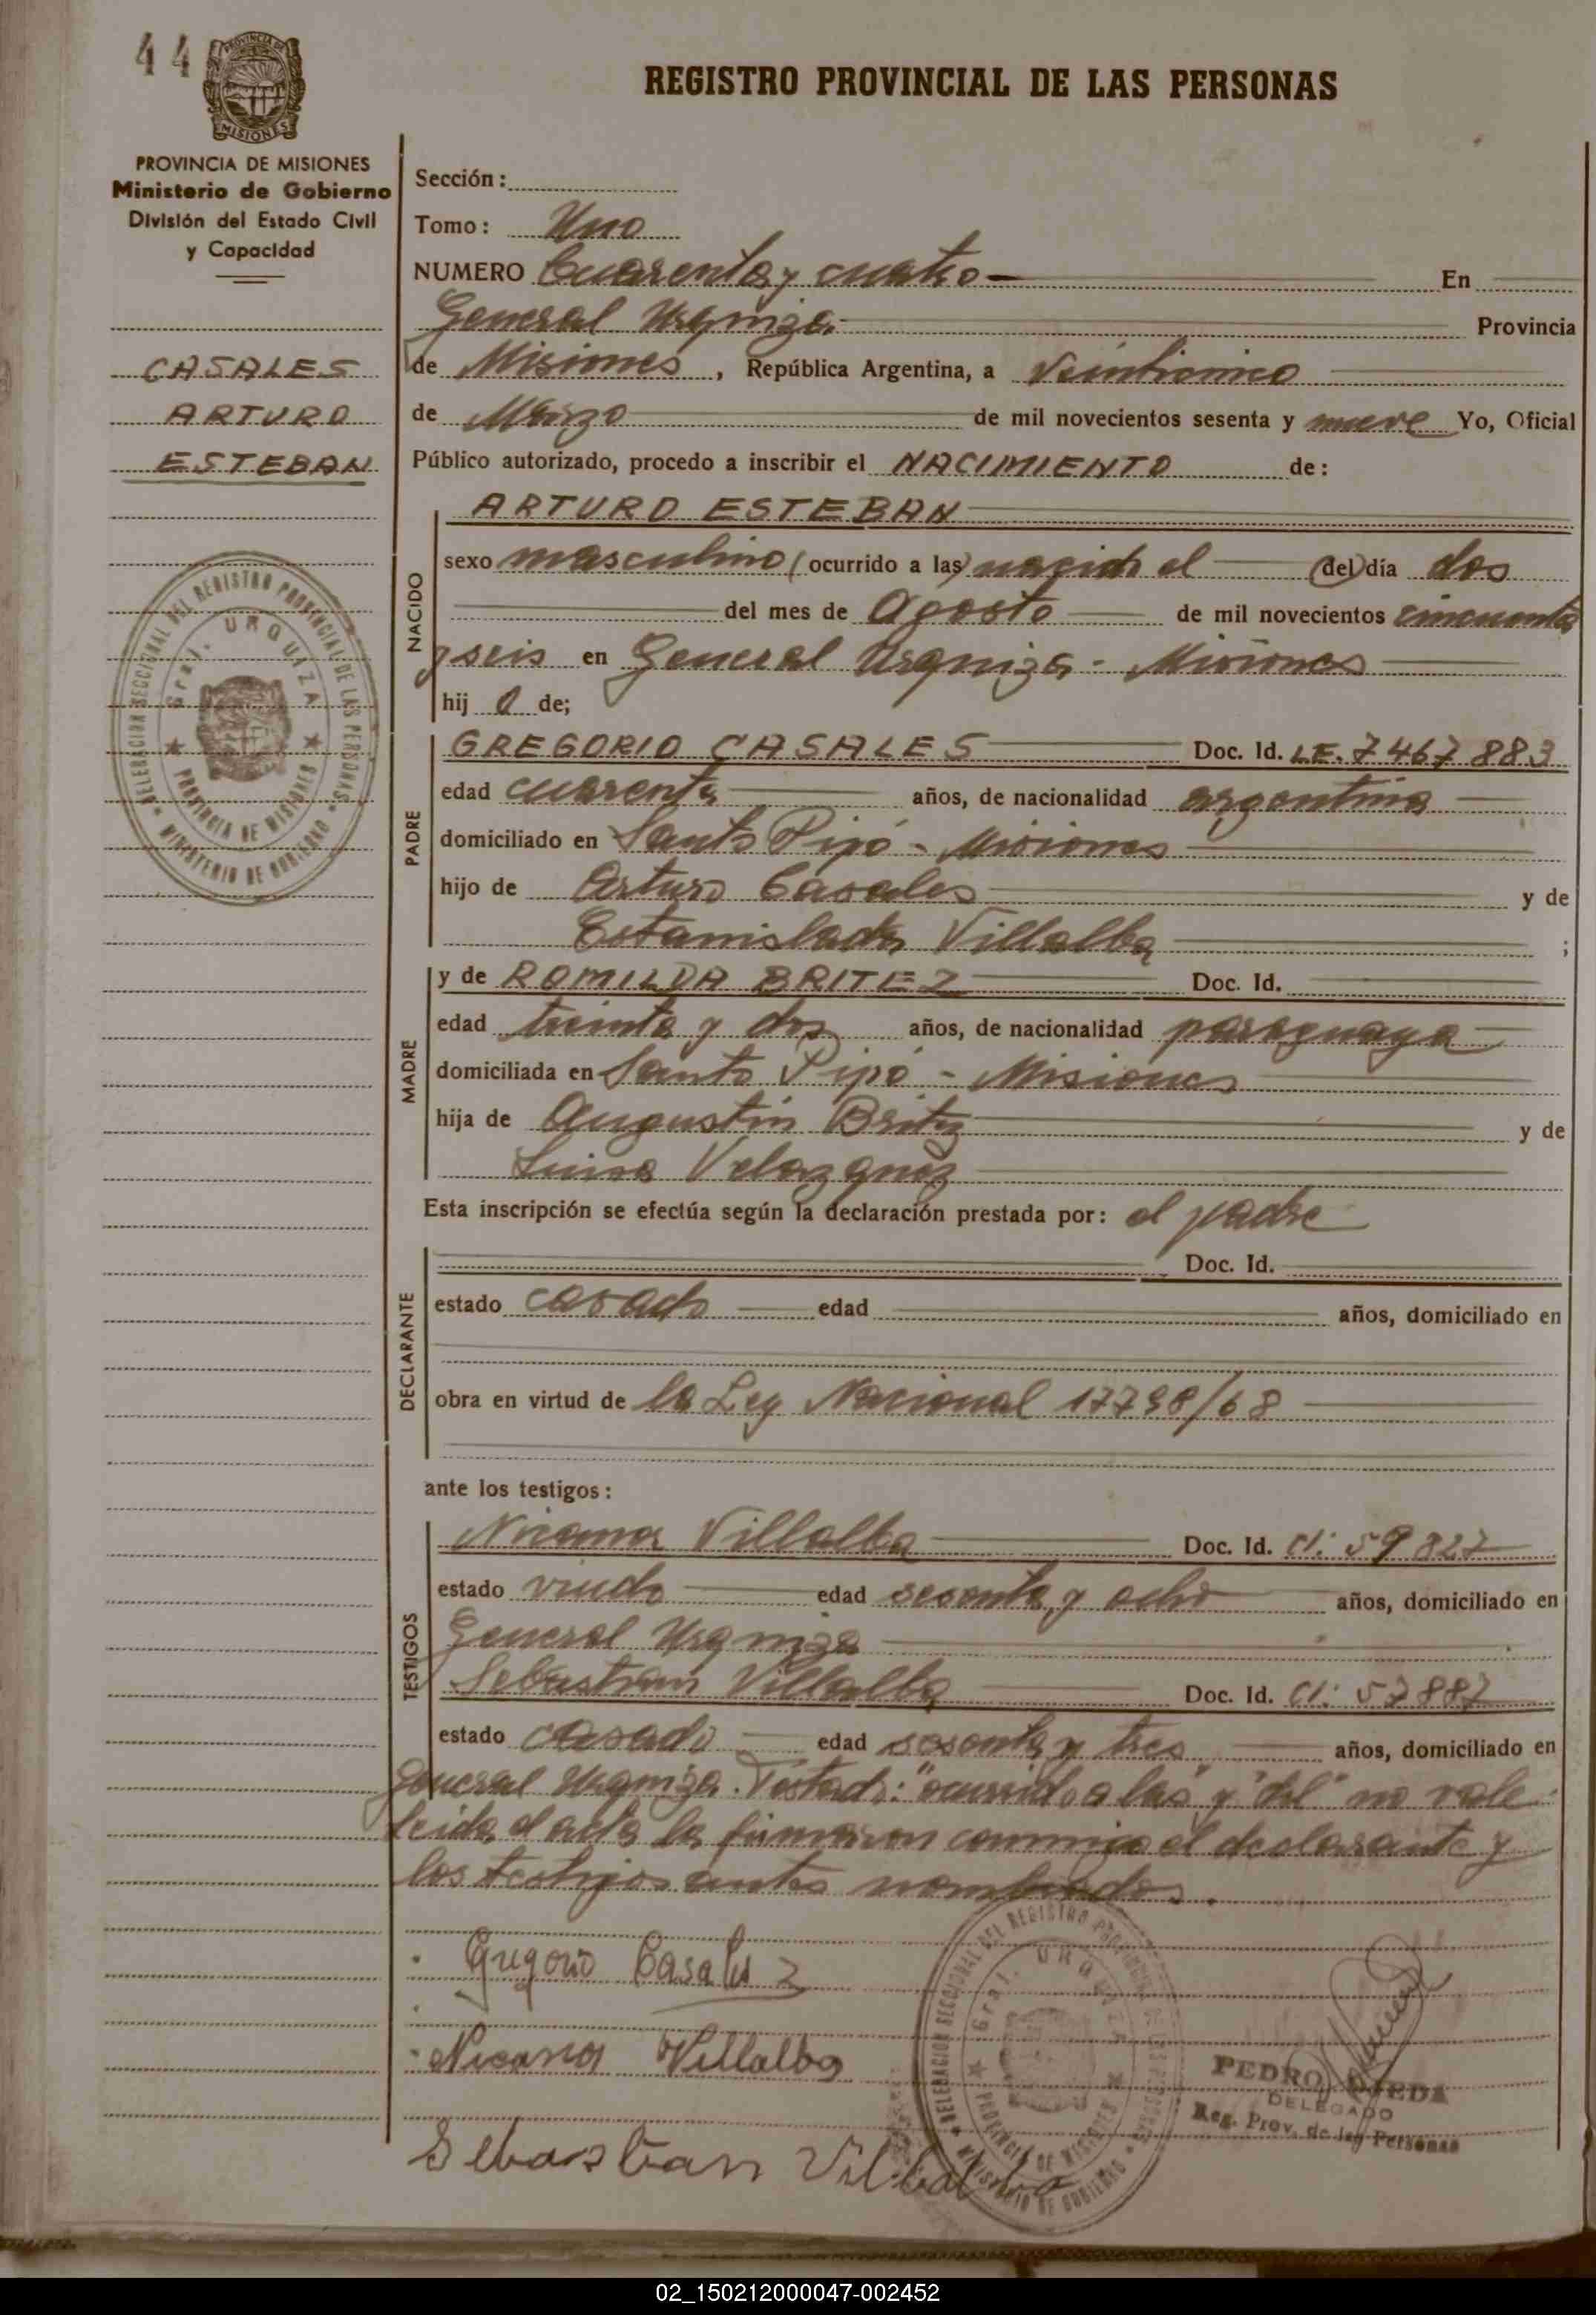 44
PROVINCIA DE MISIONES
REGISTRO PROVINCIAL DE LAS PERSONAS
PROVINCIA DE MISIONES
Ministerio de Gobierno
División del Estado Civil
y Capacidad
CASALES
ARTURO
ESTEBAN
DELEGACION SECCIONAL DEL REGISTRO PROVINCIAL DE LAS PERSONAS
Gral. URQUIZA
PROVINCIA DE MISIONES
MINISTERIO DE GOBIERNO
Sección:
Tomo: Uno
NUMERO Cuarenta y cuatro En
General Urquiza Provincia
de Misiones, República Argentina, a Veinticinco
de Marzo de mil novecientos sesenta y nueve Yo, Oficial
Público autorizado, procedo a inscribir el NACIMIENTO de:
NACIDO
ARTURO ESTEBAN
sexo masculino (ocurrido a las) nacido el (del) día dos
del mes de Agosto de mil novecientos cincuenta
y seis en General Urquiza - Misiones
hij o de;
PADRE
GREGORIO CASALES Doc. Id. L.E. 7467883
edad cuarenta años, de nacionalidad argentina
domiciliado en Santo Pipó - Misiones
hijo de Arturo Casales y de
Estanislada Villalba ;
MADRE
y de ROMILDA BRITEZ Doc. Id.
edad treinta y dos años, de nacionalidad paraguaya
domiciliada en Santo Pipó - Misiones
hija de Augustin Britez y de
Luisa Velazquez
Esta inscripción se efectúa según la declaración prestada por: el padre
DECLARANTE
Doc. Id.
estado casado edad años, domiciliado en
obra en virtud de la Ley Nacional 17798/68
ante los testigos:
TESTIGOS
Nicanor Villalba Doc. Id. CI: 59827
estado viudo edad sesenta y ocho años, domiciliado en
General Urquiza
Sebastian Villalba Doc. Id. CI: 57887
estado casado edad sesenta y tres años, domiciliado en
General Urquiza. Testado: "ocurrido a las" y "del" no vale
leida el acta la firmaron conmigo el declarante y
los testigos antes nombrados.
Gregorio Casales
Nicanor Villalba
Sebastian Villalba
DELEGACION SECCIONAL DEL REGISTRO PROVINCIAL DE LAS PERSONAS
Gral. URQUIZA
PROVINCIA DE MISIONES
MINISTERIO DE GOBIERNO
PEDRO OJEDA
DELEGADO
Reg. Prov. de las Personas
02_150212000047-002452